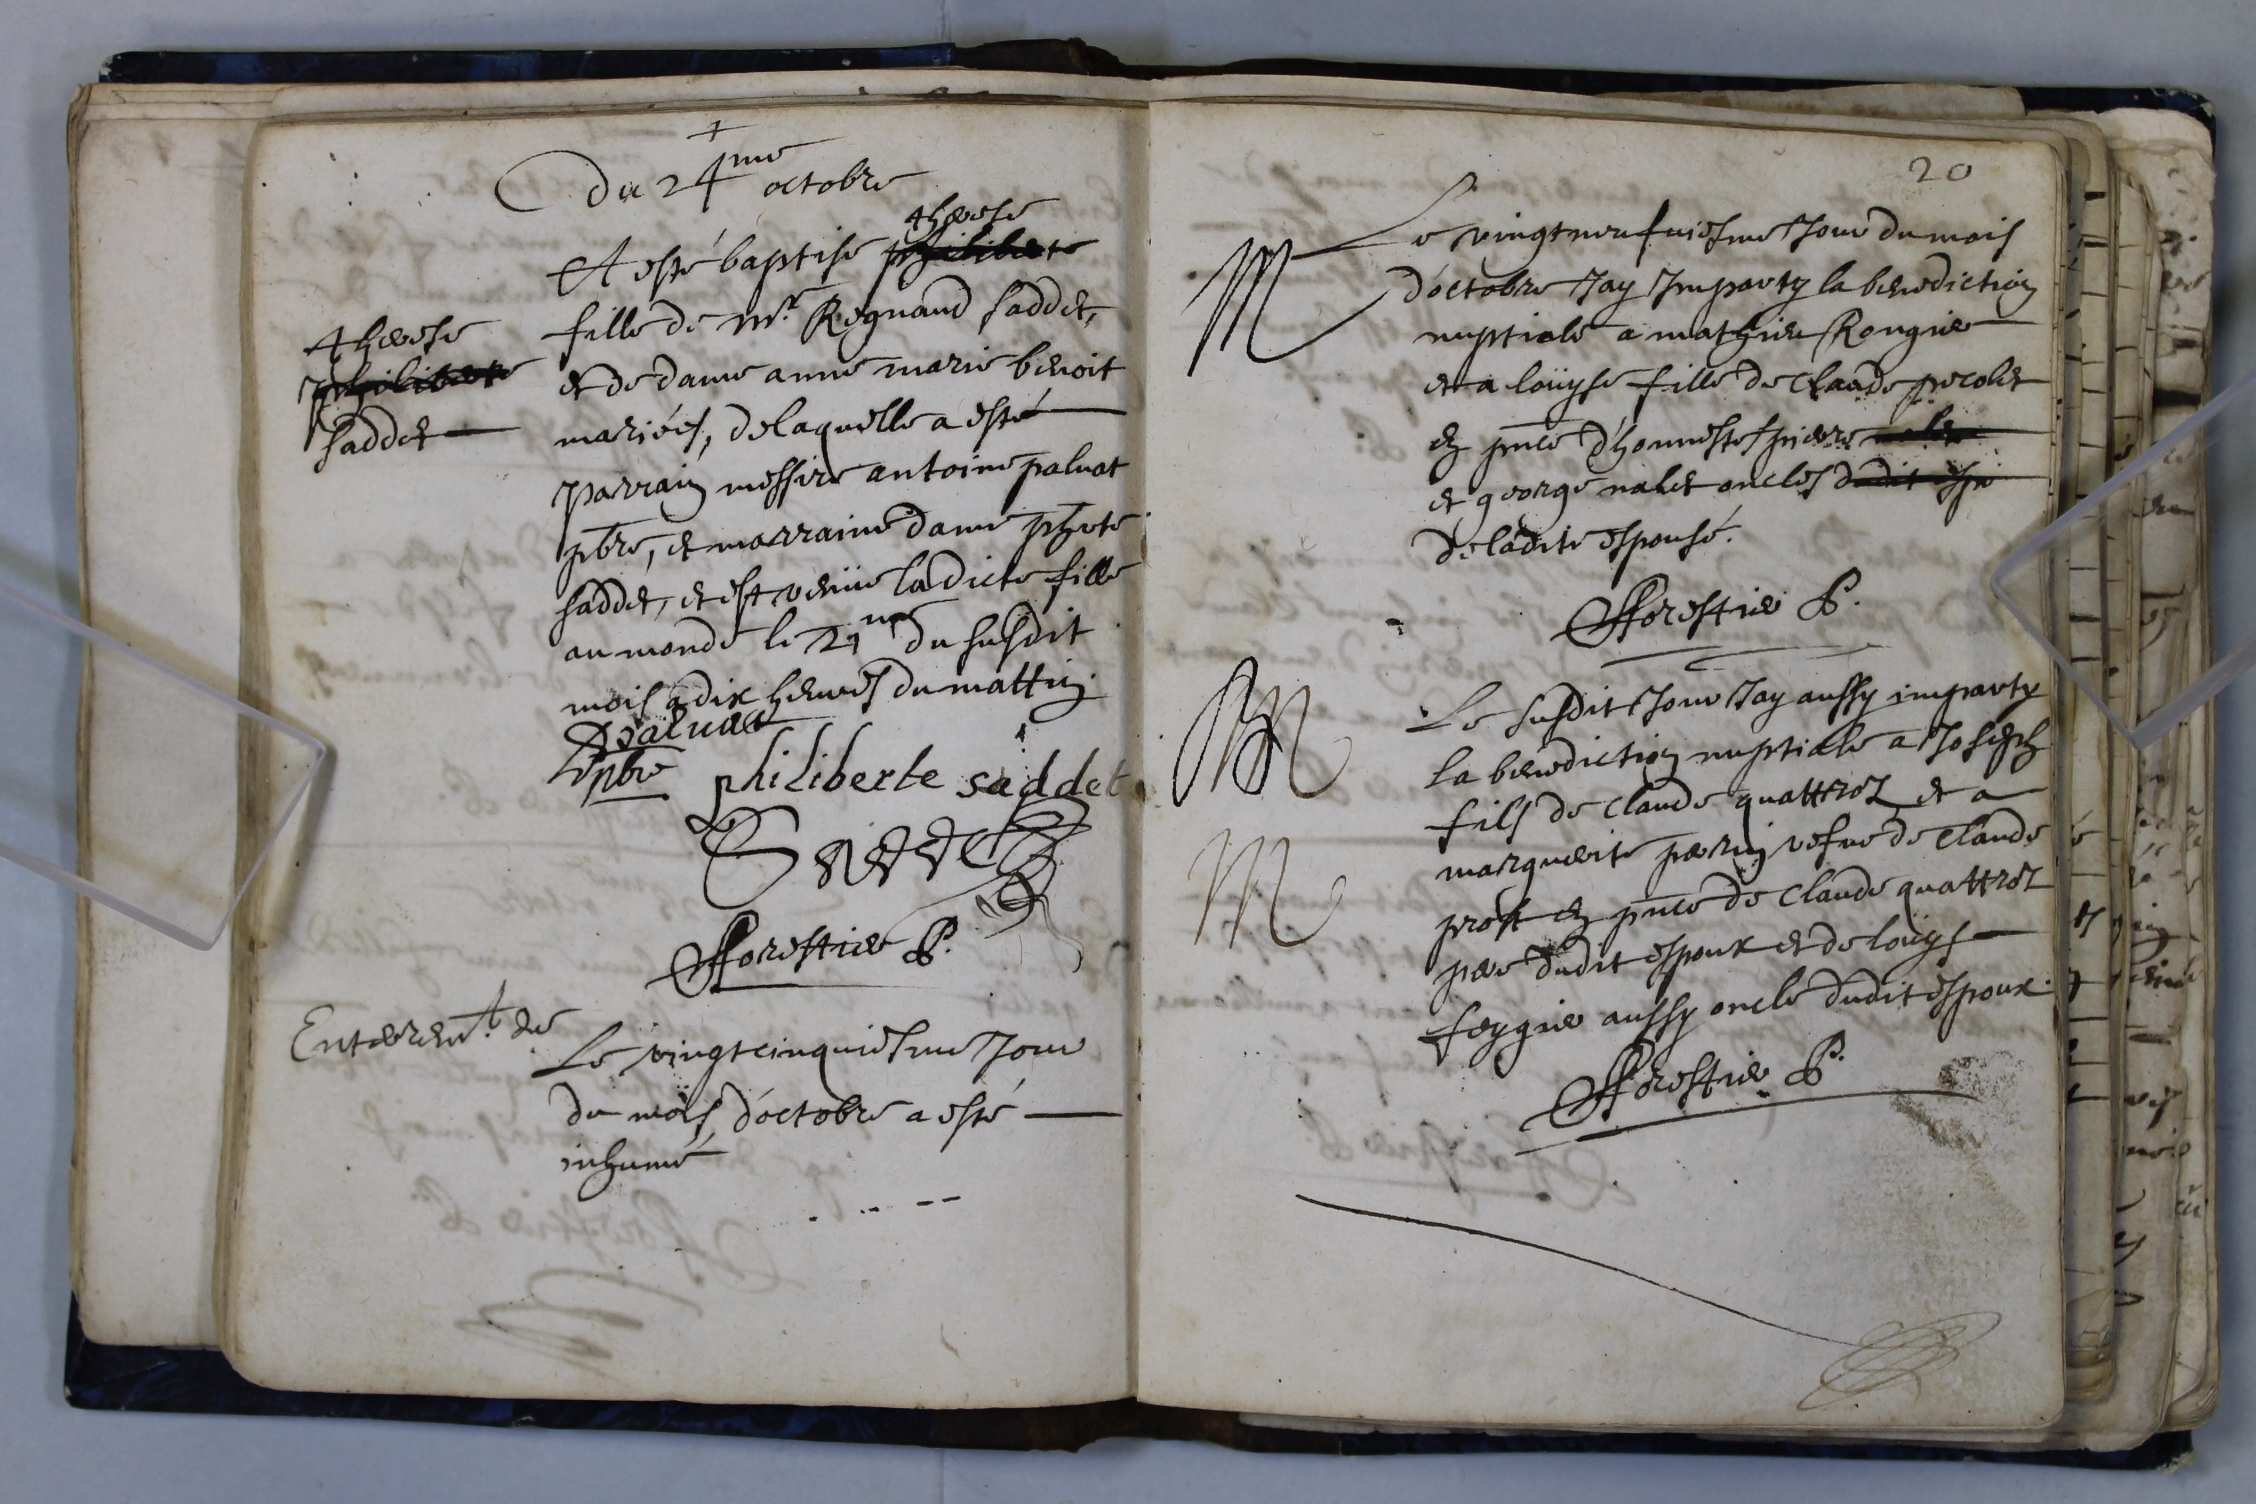 +
Du 24me octobre
A esté baptise therese philiberte
fille de Mr. Regnaud saddet,
et de dame anne marie benoit
mariés, de laquelle a esté
parrain messire antoine paluat
pbre, et marraine dame phte
saddet, et est venüe la dicte fille
au monde le 21me du susdit
mois a dix heures du mattin.
therese
philiberte
saddet
Paluat
pbre
philiberte saddet
Saddet
Fforestier P.
Enterremt. de
Le vingtcinquiesme Jour
du mois d'octobre a esté
inhumé
20
M
Le vingtneufuiesme Jour du mois
d'octobre Jay Imparty la benediction
nuptiale a mathieu Rongier
et a loüyse fille de Claude pecolet
en pnce d'honnestes pierre nalet
et george nalet oncles dudit esp
de ladite espouse.
Fforestier P.
M
Le susdit Jour Jay aussy imparty
la benediction nuptiale a Joseph
fils de Claude quattroz et a
marguerite perrin vefue de Claude
prost en pnce de Claude quattroz
pere dudit espoux et de loüys
feyguer aussy oncle dudit espoux.
M
Fforestier P.